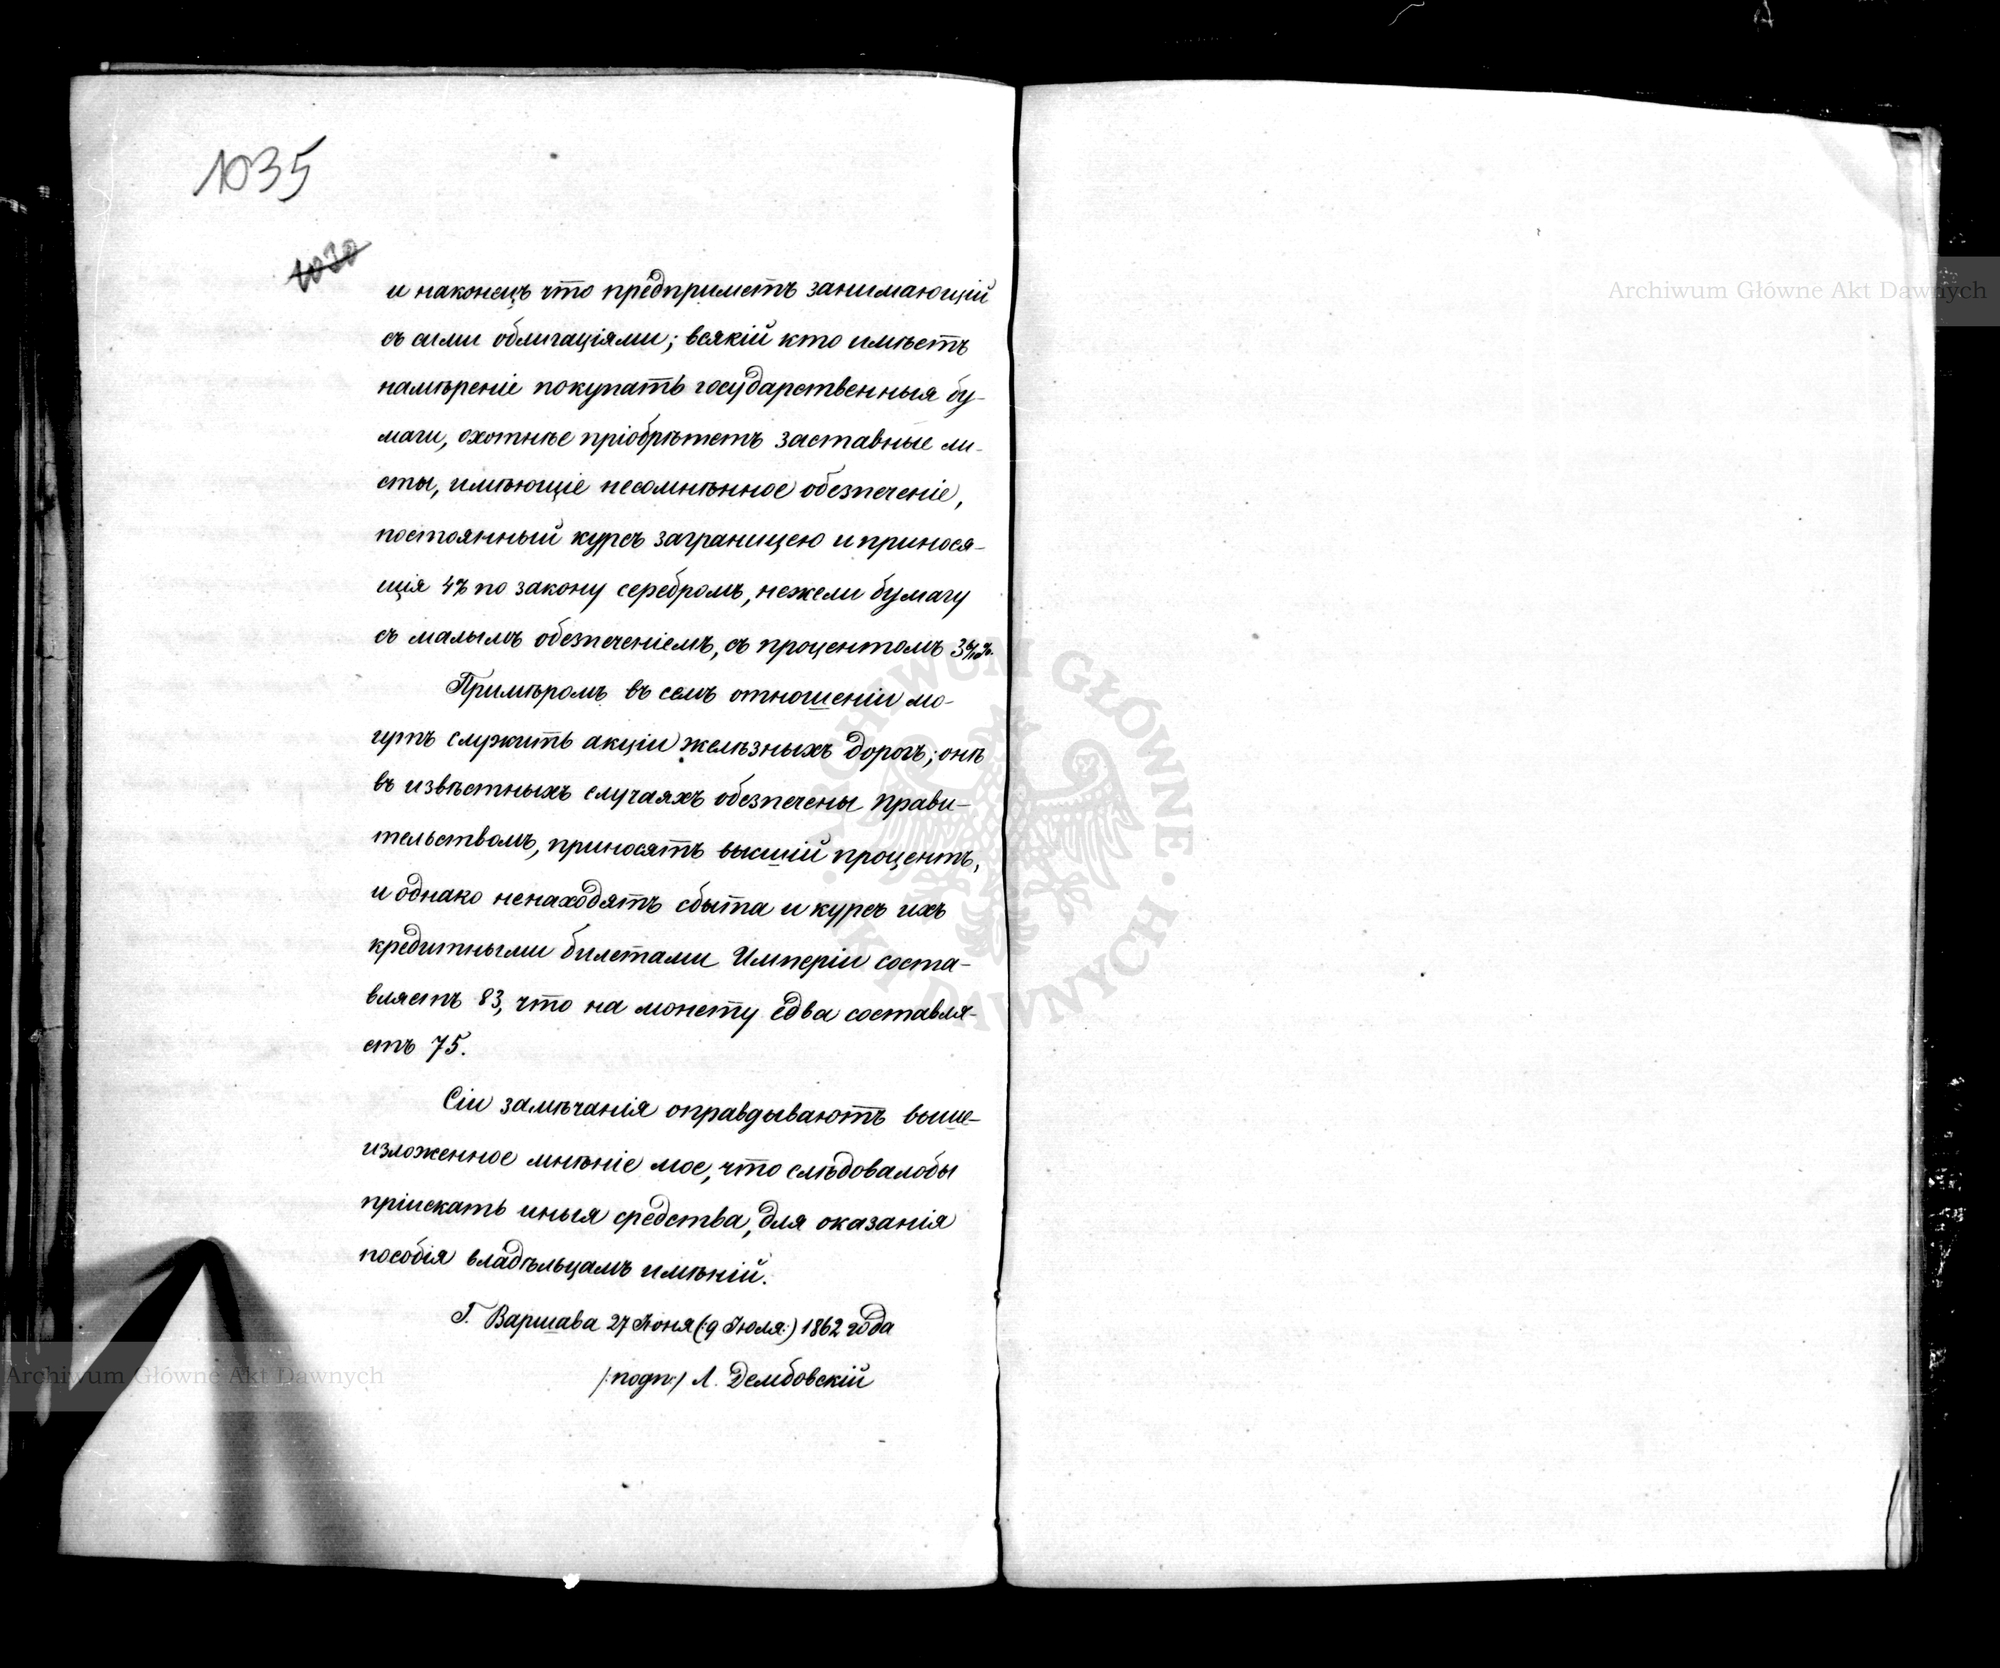 1035
1030
и наконецъ что предприметъ занимающій
съ сими облигаціями; всякій кто имѣетъ
намѣреніе покупать государственныя бу-
маги, охотнѣе пріобрѣтетъ заставные ли-
сты, имѣющіе несомнѣнное обезпеченіе,
постоянный курсъ заграницею и принося-
щія 4% по закону серебромъ, нежели бумагу
съ малымъ обезпеченіемъ, съ процентомъ
Примѣромъ въ семъ отношеніи мо-
гутъ служить акціи желѣзныхъ дорогъ; онѣ
въ извѣстныхъ случаяхъ обезпечены прави-
тельствомъ, приносятъ высшій процентъ,
и однако ненаходятъ сбыта и курсъ ихъ
кредитными билетами Имперіи соста-
вляетъ 83, что на монету едва составля-
етъ 75.
Сіи замѣчанія оправдываютъ выше-
изложенное мнѣніе мое, что слѣдовалобы
пріискать иныя средства, для оказанія
пособія владѣльцамъ имѣній.
Г. Варшава 27 Іюня (:9 Іюля:) 1862 года
/:подп:/ Л. Дембовскій
Archiwum Główne Akt Dawnych
Archiwum Główne Akt Dawnych
ARCHIWUM GŁÓWNE AKT DAWNYCH